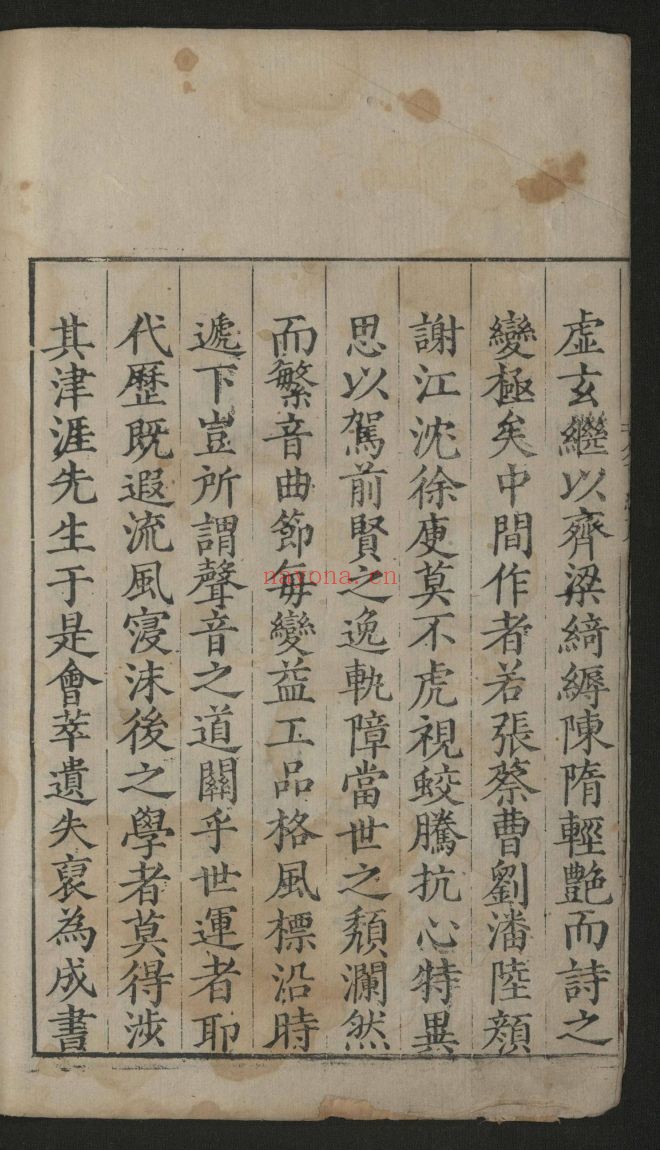 虛玄繼以齊梁綺縟陳隋輕艷而詩之
變極矣中間作者若張蔡曹劉潘陸顏
謝江沈徐庾莫不虎視蛟騰抗心特異
思以駕前賢之逸軌障當世之頹瀾然
而繁音曲節每變益工品格風標沿時
遞下豈所謂聲音之道關乎世運者耶
代歷既遐流風寖沫後之學者莫得涉
其津涯先生于是會萃遺失裒為成書
nayona.cn